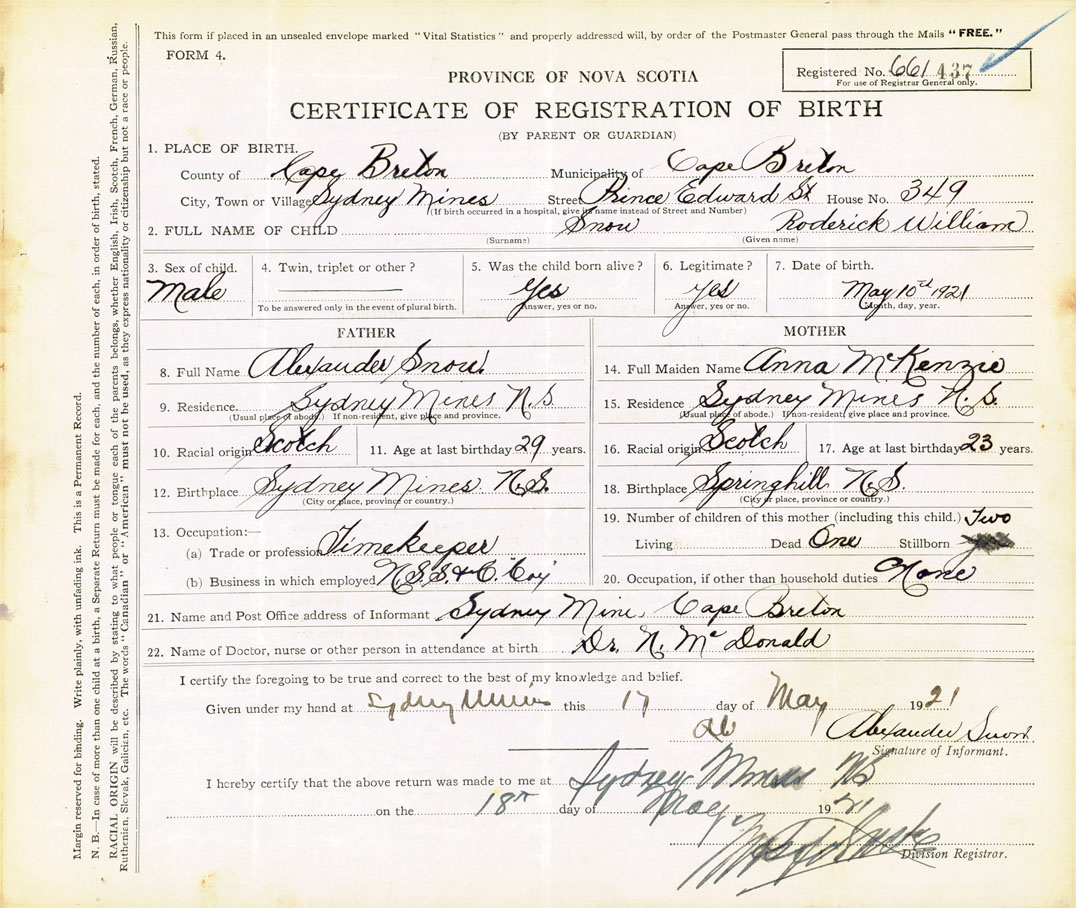 This form if placed in an unsealed envelope marked "Vital Statistics" and properly addressed will, by order of the Postmaster General pass through the Mails "FREE."
FORM 4.
Registered No. 661 437
For use of Registrar General only.
PROVINCE OF NOVA SCOTIA
CERTIFICATE OF REGISTRATION OF BIRTH
(BY PARENT OR GUARDIAN)
1. PLACE OF BIRTH.
County of Cape Breton Municipality of Cape Breton
City, Town or Village Sydney Mines Street Prince Edward St House No. 349
(If birth occurred in a hospital, give its name instead of Street and Number)
2. FULL NAME OF CHILD Snow Roderick William
(Surname) (Given name)
3. Sex of child. 4. Twin, triplet or other? 5. Was the child born alive? 6. Legitimate? 7. Date of birth.
Male Yes Yes May 10th 1921
To be answered only in the event of plural birth. Answer, yes or no. Answer, yes or no. Month, day, year.
FATHER
8. Full Name Alexander Snow
9. Residence. Sydney Mines N.S.
(Usual place of abode.) If non-resident, give place and province.
10. Racial origin Scotch 11. Age at last birthday 29 years.
12. Birthplace Sydney Mines N.S.
(City or place, province or country.)
13. Occupation:—
(a) Trade or profession Timekeeper
(b) Business in which employed N.S.S. & C. Coy
MOTHER
14. Full Maiden Name Anna McKenzie
15. Residence Sydney Mines N.S.
(Usual place of abode.) If non-resident, give place and province.
16. Racial origin Scotch 17. Age at last birthday 23 years.
18. Birthplace Springhill N.S.
(City or place, province or country.)
19. Number of children of this mother (including this child.) Two
Living Dead One Stillborn
20. Occupation, if other than household duties None
21. Name and Post Office address of Informant Sydney Mine Cape Breton
22. Name of Doctor, nurse or other person in attendance at birth Dr. N. McDonald
I certify the foregoing to be true and correct to the best of my knowledge and belief.
Given under my hand at Sydney Mines this 17 day of May 1921
Alexander Snow
Signature of Informant.
I hereby certify that the above return was made to me at Sydney Mines NS
on the 18th day of May 1921
Division Registrar.
Margin reserved for binding. Write plainly, with unfading ink. This is a Permanent Record.
N. B.—In case of more than one child at a birth, a Separate Return must be made for each, and the number of each, in order of birth, stated.
RACIAL ORIGIN will be described by stating to what people or tongue each of the parents belongs, whether English, Irish, Scotch, French, German, Russian,
Ruthenian, Slovak, Galician, etc. The words "Canadian" or "American" must not be used, as they express nationality or citizenship but not a race or people.